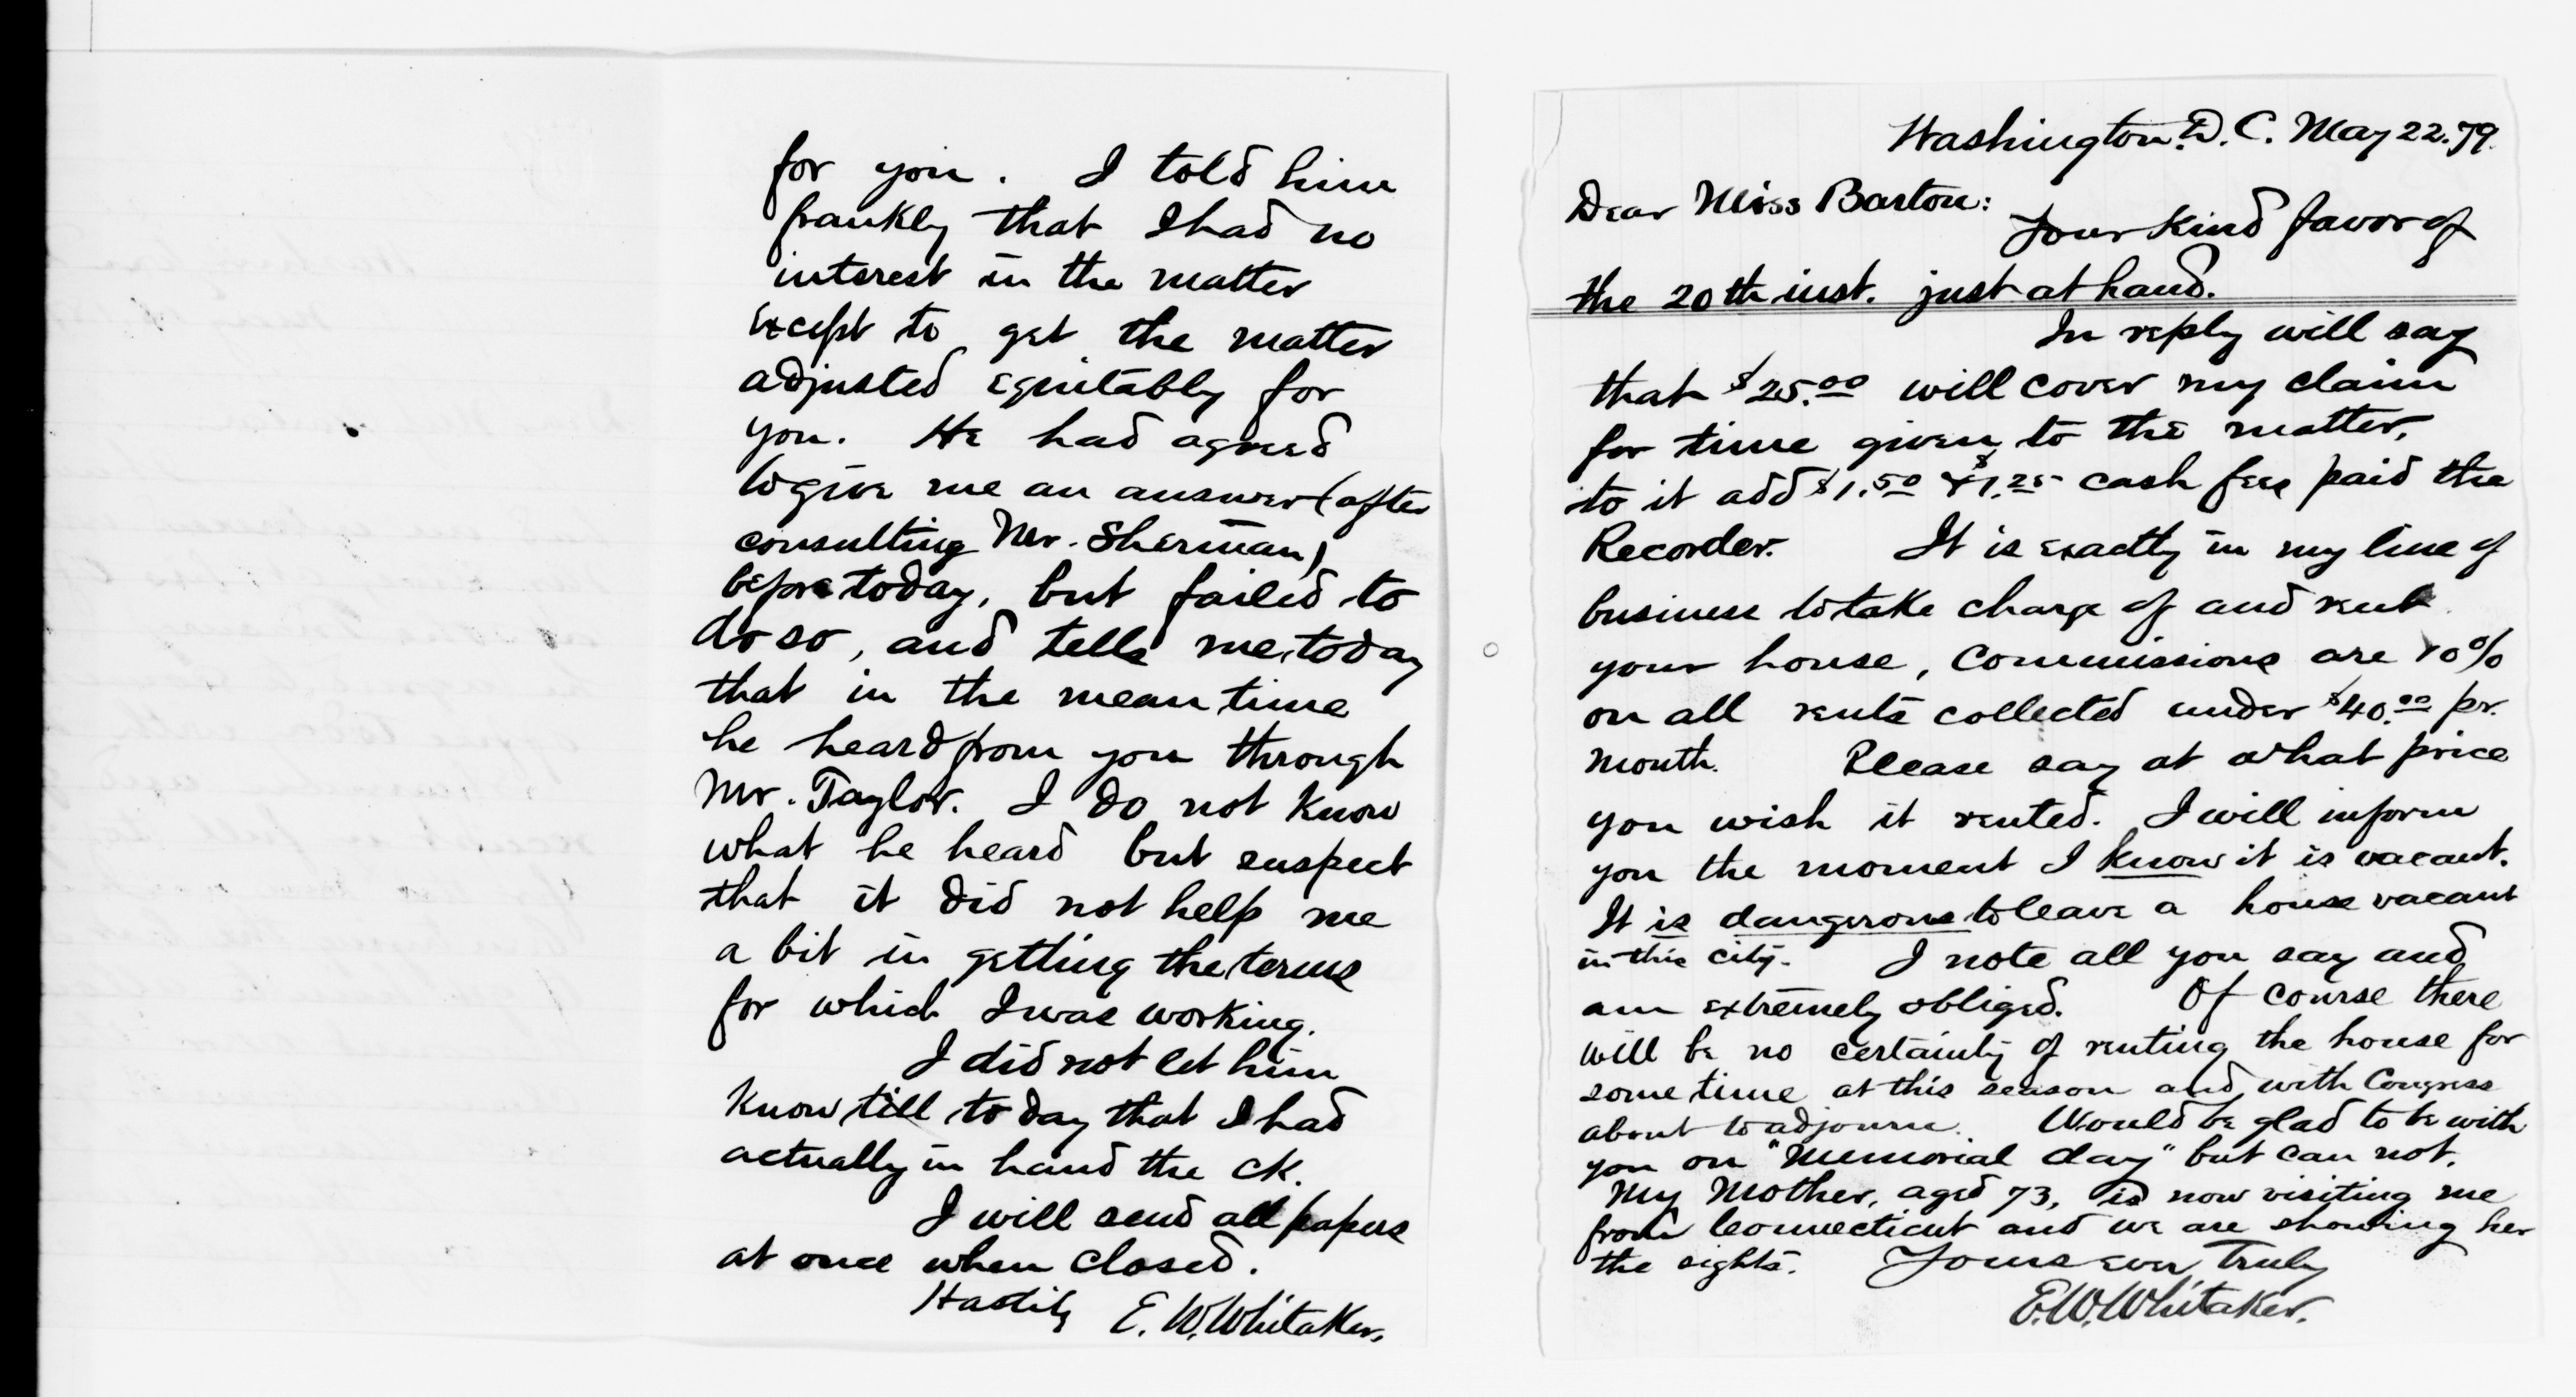 for you. I told him
frankly that I had no
interest in the matter
except to get the matter
adjusted equitably for
you. He had agreed
to give me an answer (after
consulting Mr. Sherman)
before today, but failed to
do so, and tells me today
that in the mean time
he heard from you through
Mr. Taylor. I do not know
what he heard but suspect
that it did not help me
a bit in getting the terms
for which I was working.
I did not let him
know till to day that I had
actually in hand the ck.
I will send all papers
at once when closed.
Hastily E. W. Whitaker.
Washington. D. C. May 22. 79.
Dear Miss Barton:
Your kind favor of
the 20th inst. just at hand.
In reply will say
that $25.00 will cover my claim
for time given to the matter,
to it add $1.50 & $1.25 cash fees paid the
Recorder. It is exactly in my line of
business to take charge of and rent
your house, Commissions are 10%
on all rents collected under $40.00 pr.
month. Please say at what price
you wish it rented. I will inform
you the moment I know it is vacant.
It is dangerous to leave a house vacant
in this city. I note all you say and
am extremely obliged. Of course there
will be no certainty of renting the house for
some time at this season and with Congress
about to adjourn. Would be glad to be with
you on "Memorial day" but can not.
My Mother, aged 73, is now visiting me
from Connecticut and we are showing her
the sights. Yours ever Truly
E. W. Whitaker.